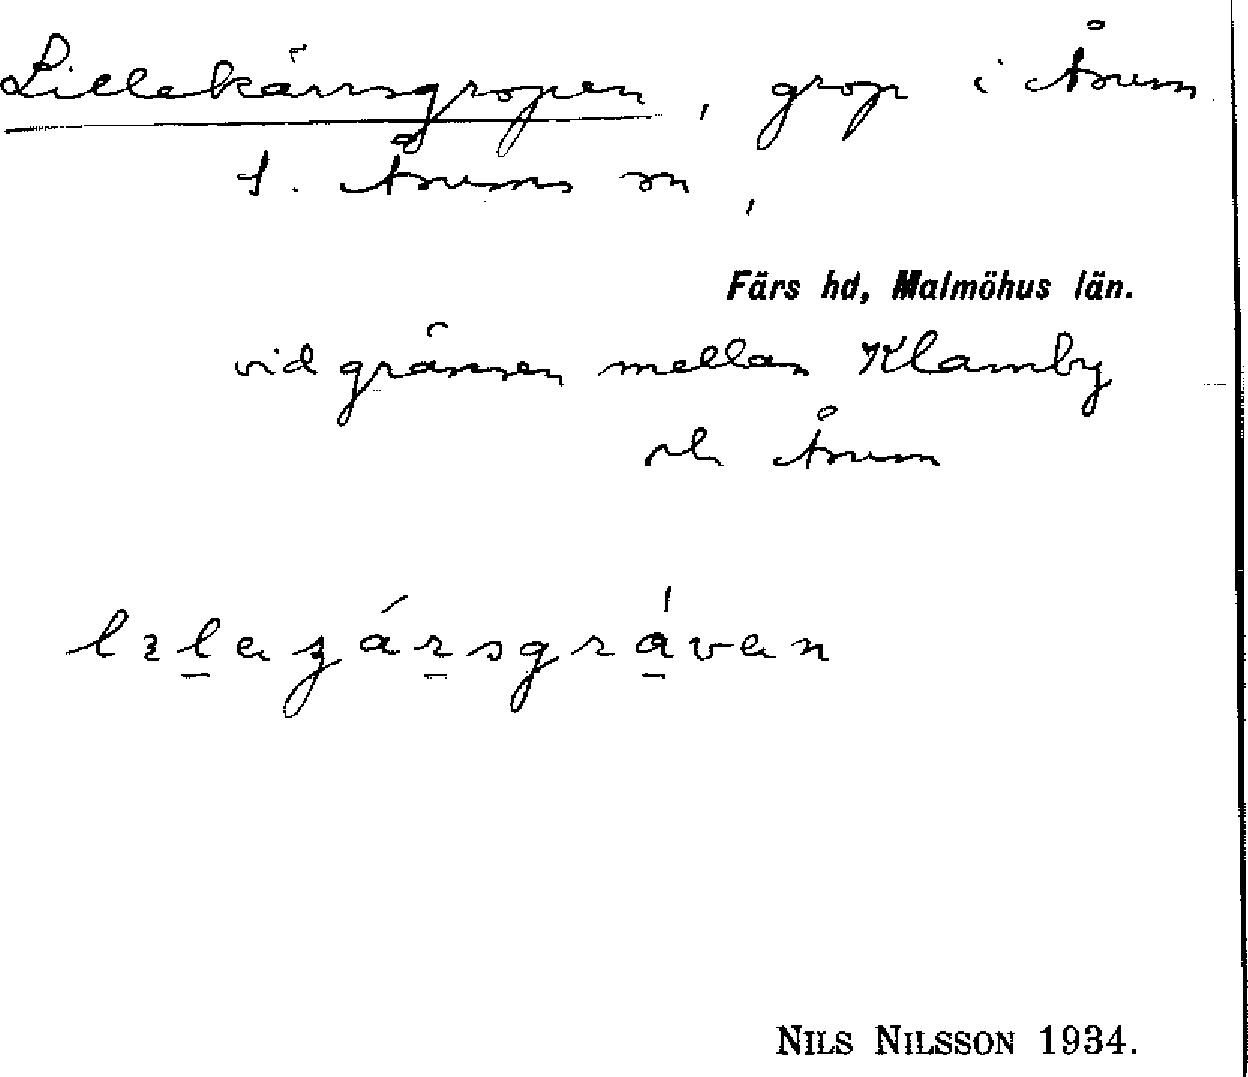 Lillekärrsgropen, grop i Åsum
S. Åsums sn,
Färs hd, Malmöhus län.
vid gränsen mellan Klamby
och Åsum
NILS NILSSON 1934.